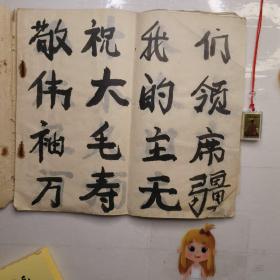 敬祝我们
伟大的领
袖毛主席
万寿无疆